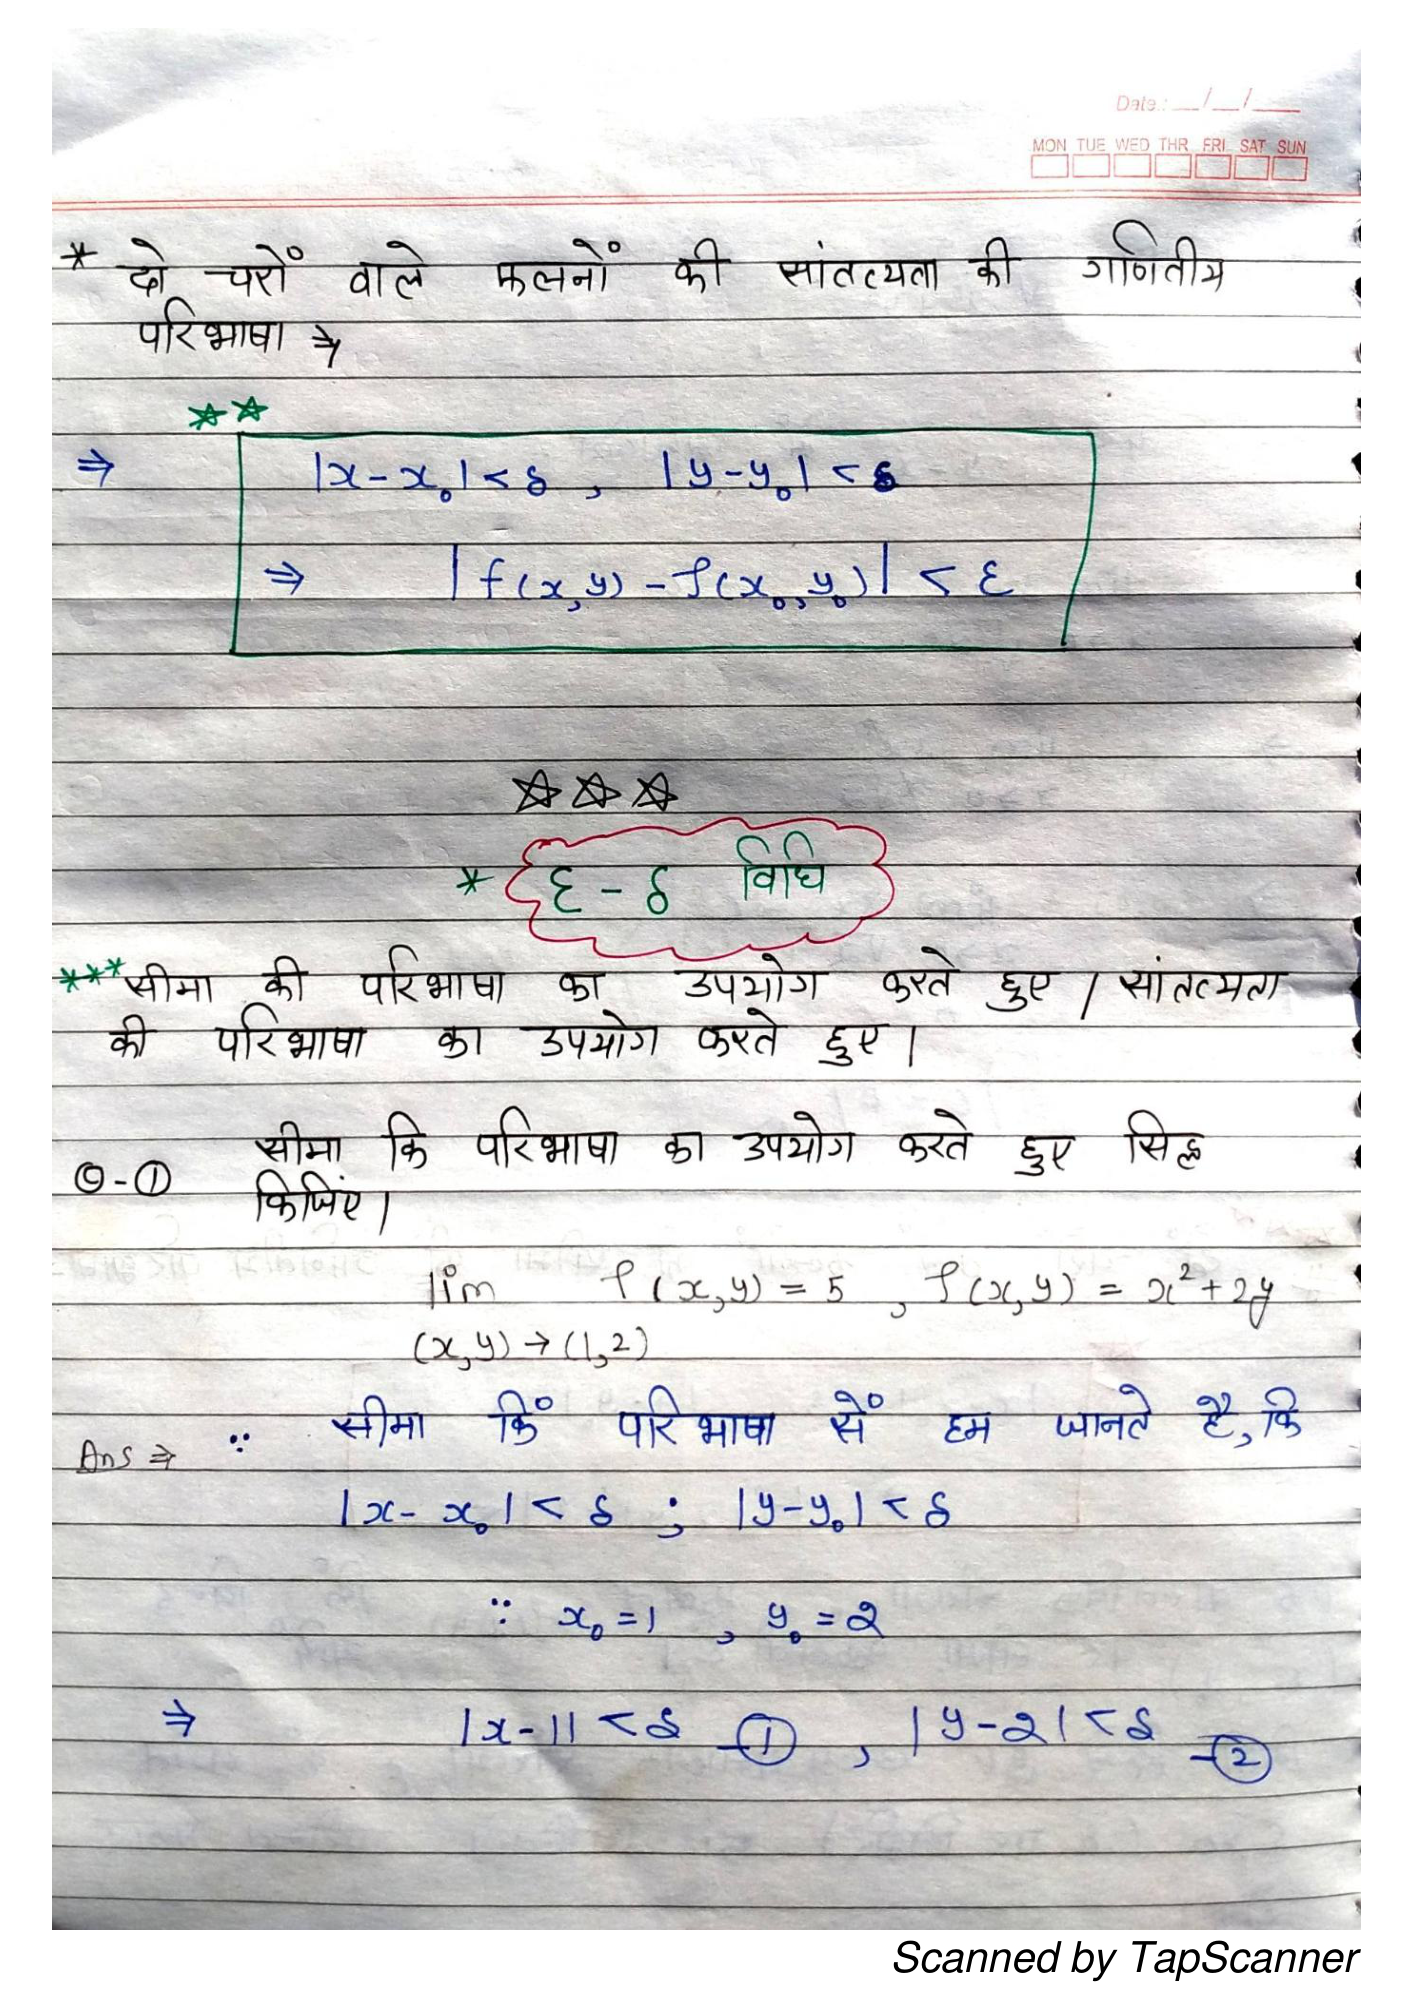 Date.: __/__/____
MON TUE WED THR FRI SAT SUN
* दो चरों वाले फलनों की सांतत्यता की गणितीय
परिभाषा ⇒
☆☆
⇒ |x-x₀| < δ , |y-y₀| < δ
⇒ |f(x,y) - f(x₀,y₀)| < ε
☆☆☆
* ε - δ विधि
*** सीमा की परिभाषा का उपयोग करते हुए / सांतत्यता
की परिभाषा का उपयोग करते हुए।
Q-① सीमा कि परिभाषा का उपयोग करते हुए सिद्ध
किजिंए।
lim f(x,y) = 5 , f(x,y) = x²+2y
(x,y)→(1,2)
Ans ⇒ ∵ सीमा किं परिभाषा सें हम जानते है, कि
|x-x₀| < δ ; |y-y₀| < δ
∵ x₀=1 , y₀=2
⇒ |x-1| < δ -① , |y-2| < δ -②
Scanned by TapScanner